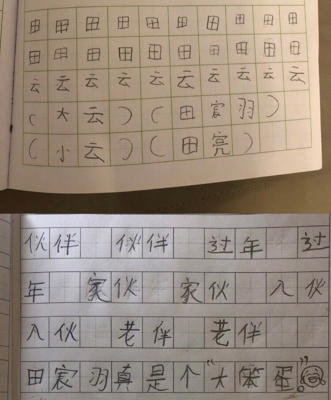 田 田 田 田 田 田 田 田 田 田
田 田 田 田 田 田 田 田 田 田
云 云 云 云 云 云 云 云 云 云
(大云)(田宸羽)
(小云)(田亮)
伙伴 伙伴 过年 过
年 家伙 家伙 入伙
入伙 老伴 老伴
田宸羽真是个“大笨蛋”